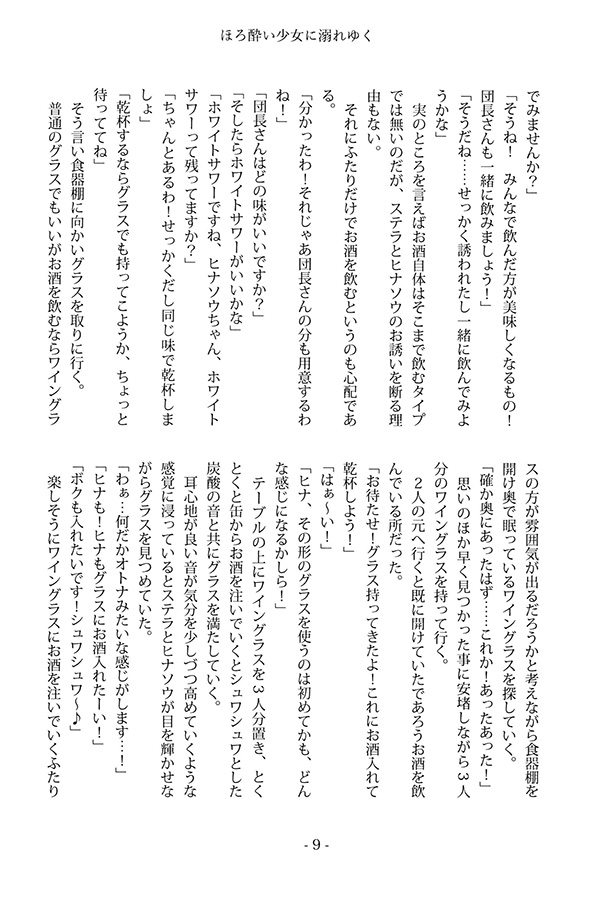 ほろ酔い少女に溺れゆく
でみませんか？」
「そうね！　みんなで飲んだ方が美味しくなるもの！
団長さんも一緒に飲みましょう！」
「そうだね……せっかく誘われたし一緒に飲んでみよ
うかな」
　実のところを言えばお酒自体はそこまで飲むタイプ
では無いのだが、ステラとヒナソウのお誘いを断る理
由もない。
　それにふたりだけでお酒を飲むというのも心配であ
る。
「分かったわ！それじゃあ団長さんの分も用意するわ
ね！」
「団長さんはどの味がいいですか？」
「そしたらホワイトサワーがいいかな」
「ホワイトサワーですね、ヒナソウちゃん、ホワイト
サワーって残ってますか？」
「ちゃんとあるわ！せっかくだし同じ味で乾杯しま
しょ」
「乾杯するならグラスでも持ってこようか、ちょっと
待っててね」
　そう言い食器棚に向かいグラスを取りに行く。
　普通のグラスでもいいがお酒を飲むならワイングラ
スの方が雰囲気が出るだろうかと考えながら食器棚を
開け奥で眠っているワイングラスを探していく。
「確か奥にあったはず……これか！あったあった！」
　思いのほか早く見つかった事に安堵しながら３人
分のワイングラスを持って行く。
　２人の元へ行くと既に開けていたであろうお酒を飲
んでいる所だった。
「お待たせ！グラス持ってきたよ！これにお酒入れて
乾杯しよう！」
「はぁ〜い！」
「ヒナ、その形のグラスを使うのは初めてかも、どん
な感じになるかしら！」
　テーブルの上にワイングラスを３人分置き、とく
とくと缶からお酒を注いでいくとシュワシュワとした
炭酸の音と共にグラスを満たしていく。
　耳心地が良い音が気分を少しづつ高めていくような
感覚に浸っているとステラとヒナソウが目を輝かせな
がらグラスを見つめていた。
「わぁ…何だかオトナみたいな感じがします…！」
「ヒナも！ヒナもグラスにお酒入れたーい！」
「ボクも入れたいです！シュワシュワ〜♪」
　楽しそうにワイングラスにお酒を注いでいくふたり
- 9 -